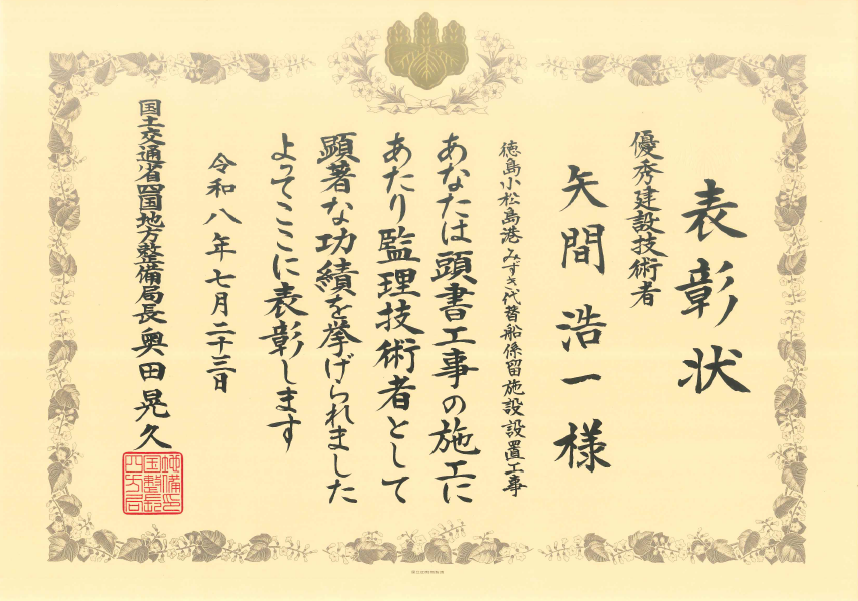 表彰状
優秀建設技術者
矢間浩一様
徳島小松島港みずき代替船係留施設設置工事
あなたは頭書工事の施工に
あたり監理技術者として
顕著な功績を挙げられました
よってここに表彰します
令和八年七月二十三日
国土交通省四国地方整備局長奥田晃久